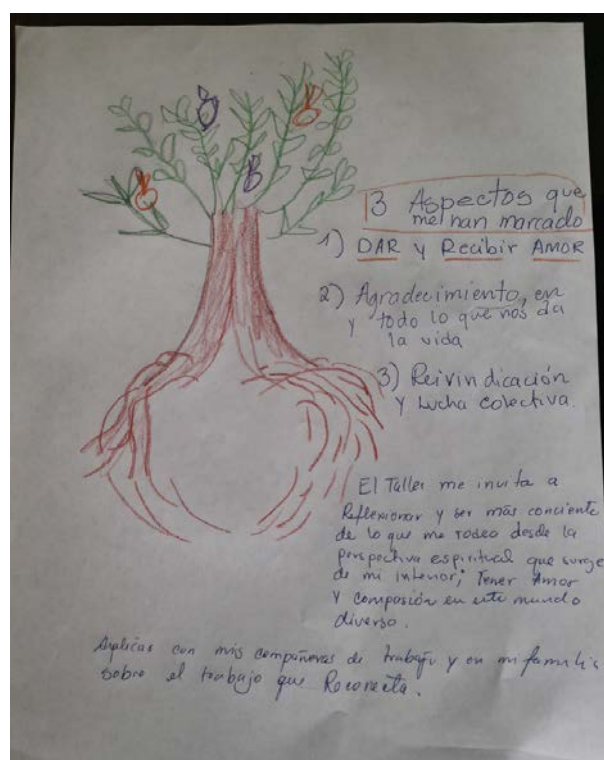 3 Aspectos que
me han marcado
1) DAR y Recibir AMOR
2) Agradecimiento, en
y todo lo que nos da
la vida
3) Reivindicación
y Lucha colectiva.
El Taller me invita a
Reflexionar y ser más conciente
de lo que me rodeo desde la
perspectiva espiritual que surge
de mi interior; Tener Amor
y compasión en este mundo
diverso.
Aplicar con mis compañeras de trabajo y en mi familia
sobre el trabajo que Reconecta.